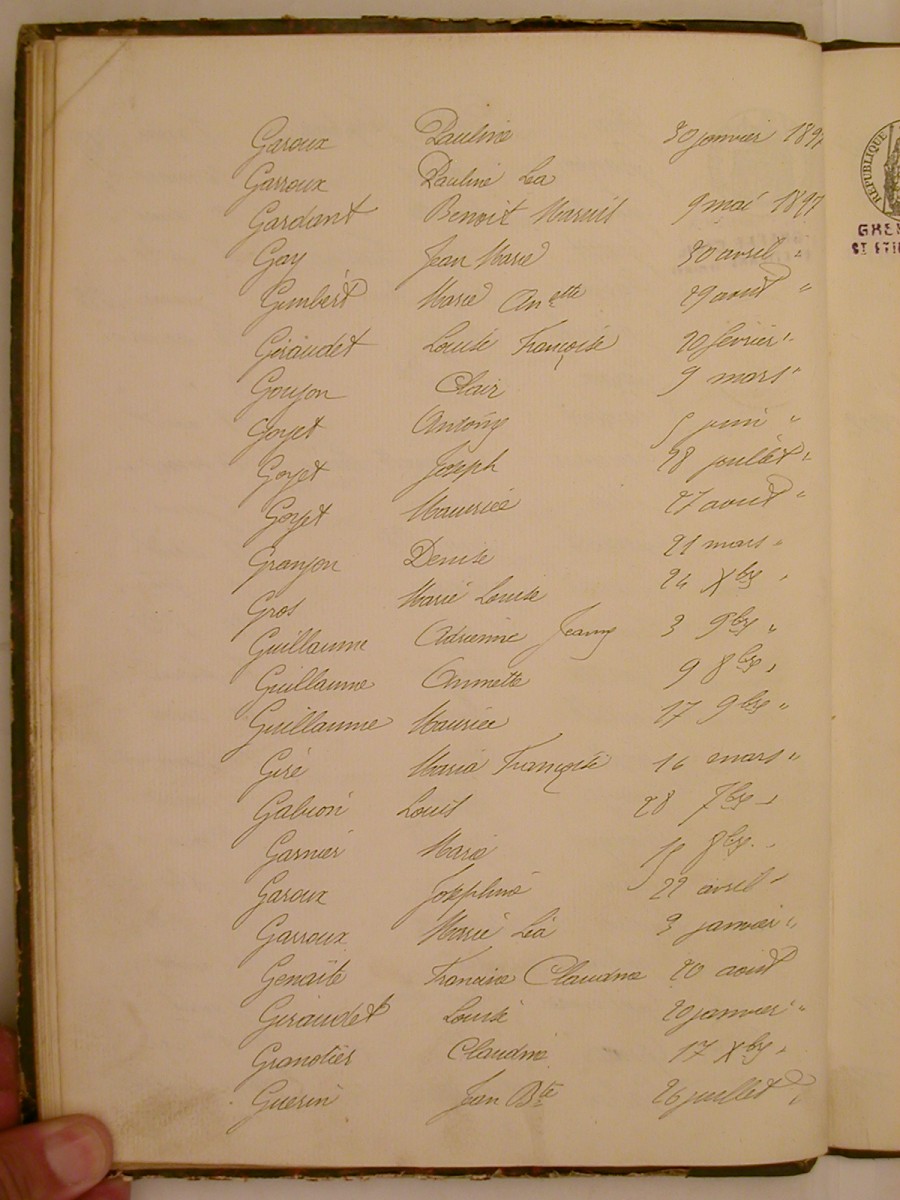 Garoux Pauline 30 janvier 1897
Garroux Pauline Léa
Gardant Benoit Marius 9 mai 1897
Gay Jean Marie 30 avril "
Gimbert Marie Anette 29 aout "
Géraudet Louise Françoise 20 février "
Goujon Clair 9 mars "
Goyet Antony 5 juin "
Goyet Joseph 28 juillet "
Goyet Maurice 27 aout "
Granjon Denise 21 mars "
Gros Marie Louise 24 Xbre "
Guillaume Adrienne Jeanny 3 9bre "
Guillaume Annette 9 8bre "
Guillaume Maurice 17 9bre "
Giré Maria Françoise 16 mars "
Gabion Louis 28 7bre "
Garnier Marie 8bre "
Garoux Joséphine 22 avril "
Garroux Marie Léa 3 janvier "
Genaite Francine Claudine 20 aout
Giraudet Louise 20 janvier "
Granotier Claudine 17 Xbre "
Guerin Jean Bte 26 juillet "
REPUBLIQUE
ST ETIE